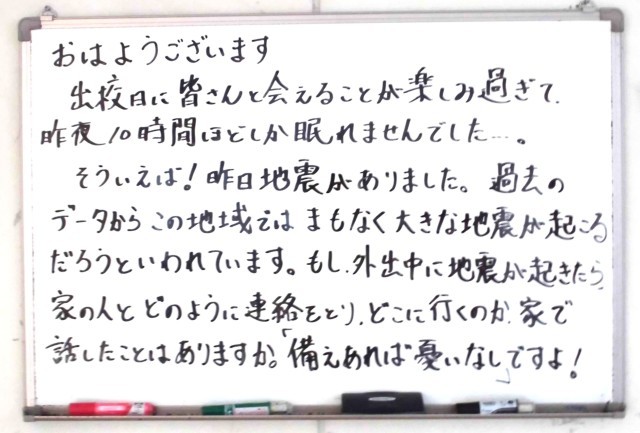 おはようございます
出校日に皆さんと会えることが楽しみ過ぎて、
昨夜10時間ほどしか眠れませんでした…。
そういえば!昨日地震がありました。過去の
データからこの地域ではまもなく大きな地震が起こる
だろうといわれています。もし、外出中に地震が起きたら
家の人とどのように連絡をとり、どこに行くのか、家で
話したことはありますか。「備えあれば憂いなし」ですよ!